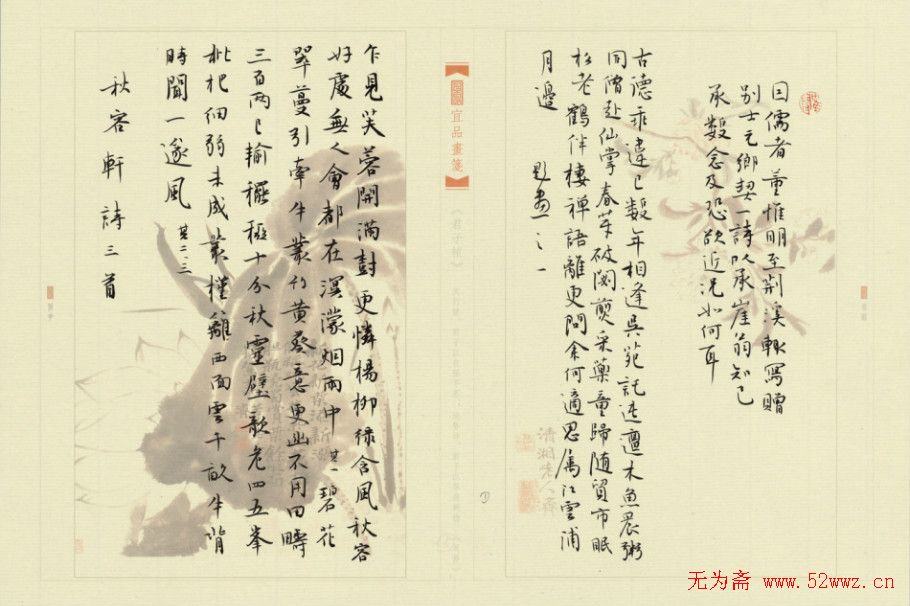 因儒者董惟明至荆溪輒寫贈
别士元鄉契一詩以承崖翁知己
承數念及恐欲近況如何耳
古德乖違已數年相逢吳苑託迍邅木魚晨粥
同僧赴仙掌春芽破閣煎采藥童歸随貿市眠
松老鶴伴棲禪語離更問余何適思属江雲浦
月邊
題畫之一
宜品畫箋
乍見芙蓉開滿封更憐楊柳綠含風秋容
好處無人會都在溟濛烟雨中 其一 碧花
翠蔓引牽牛叢竹黄葵意更幽不用田疇
三百两已輸穤稏十分秋靈壁歌老四五峯
枇杷细弱未成叢槿籬西面雲千畝牛背
時聞一遂風 其二、三
秋容軒詩三首
无为斋 www.52wwz.cn